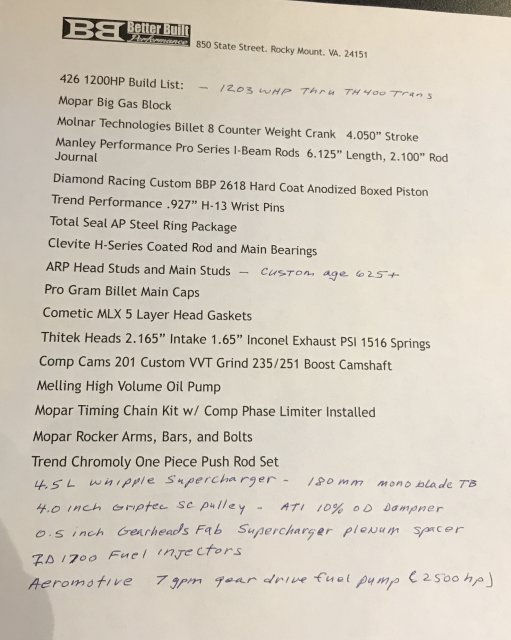 BB Better Built
Performance
850 State Street. Rocky Mount. VA. 24151
426 1200HP Build List: - 1203 WHP Thru TH400 Trans
Mopar Big Gas Block
Molnar Technologies Billet 8 Counter Weight Crank 4.050” Stroke
Manley Performance Pro Series I-Beam Rods 6.125” Length, 2.100” Rod
Journal
Diamond Racing Custom BBP 2618 Hard Coat Anodized Boxed Piston
Trend Performance .927” H-13 Wrist Pins
Total Seal AP Steel Ring Package
Clevite H-Series Coated Rod and Main Bearings
ARP Head Studs and Main Studs - Custom age 625+
Pro Gram Billet Main Caps
Cometic MLX 5 Layer Head Gaskets
Thitek Heads 2.165” Intake 1.65” Inconel Exhaust PSI 1516 Springs
Comp Cams 201 Custom VVT Grind 235/251 Boost Camshaft
Melling High Volume Oil Pump
Mopar Timing Chain Kit w/ Comp Phase Limiter Installed
Mopar Rocker Arms, Bars, and Bolts
Trend Chromoly One Piece Push Rod Set
4.5L Whipple Supercharger - 180mm monoblade TB
4.0 inch Griptec SC pulley - ATI 10% OD Dampner
0.5 inch Gearheads Fab Supercharger plenum spacer
ID 1700 Fuel injectors
Aeromotive 7gpm gear drive fuel pump (2500hp)